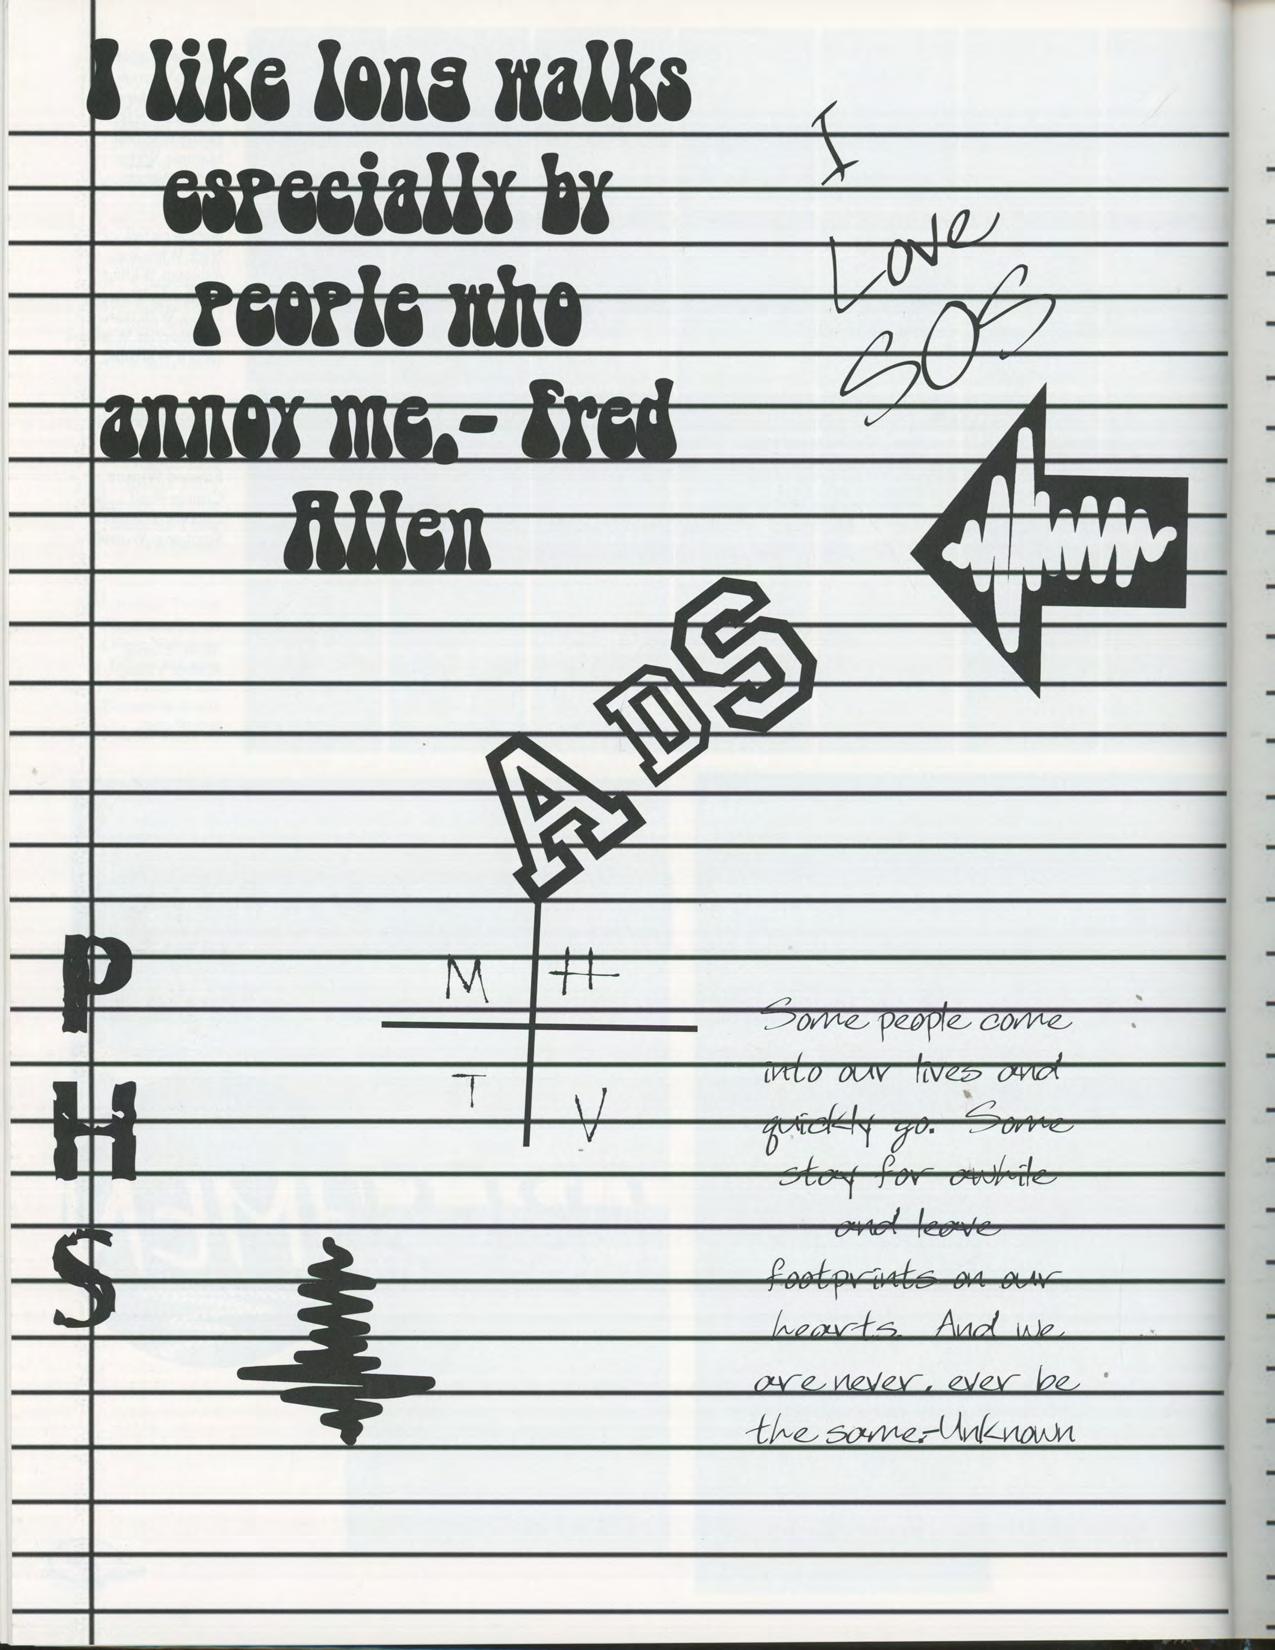 I like long walks
especially by
people who
annoy me.- Fred
Allen
I
Love
SOS
ADS
P
H
S
M H
T V
Some people come
into our lives and
quickly go. Some
stay for awhile
and leave
footprints on our
hearts. And we
are never, ever be
the same.-Unknown